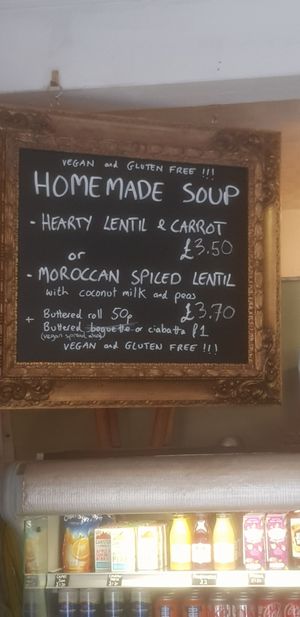 VEGAN and GLUTEN FREE !!!
HOMEMADE SOUP
- HEARTY LENTIL & CARROT
£3.50
or
- MOROCCAN SPICED LENTIL
with coconut milk and peas
£3.70
+ Buttered roll 50p
Buttered baguette or ciabatta £1
VEGAN and GLUTEN FREE !!!